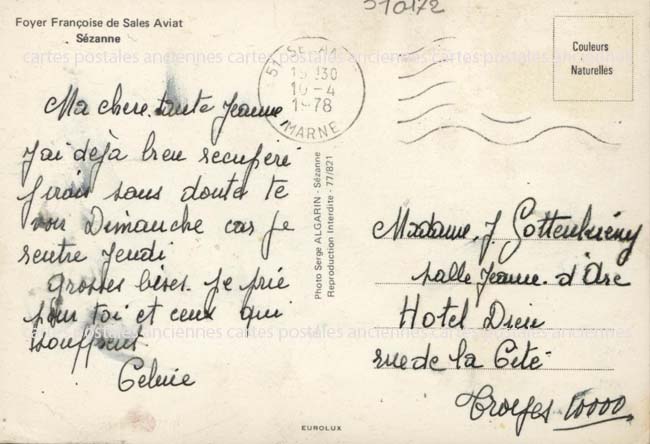 510172
Foyer Françoise de Sales Aviat
Sézanne
cartes postales anciennes cartes postales anciennes cartes postales anciennes
51 SEZANNE
MARNE
10-4
1978
Couleurs
Naturelles
Ma chere tante Jeanne
J'ai déjà bien recupéré
J'irais sans doute te
voir Dimanche car je
rentre Jeudi
grosses bises. je prie
pour toi et ceux qui
souffrent
Photo Serge ALGARIN - Sézanne
Reproduction Interdite - 77/821
Madame J
salle Jeanne d'Arc
Hotel Dieu
rue de la Cité
Troyes 10000
cartes postales anciennes cartes postales anciennes cartes postales anciennes
EUROLUX